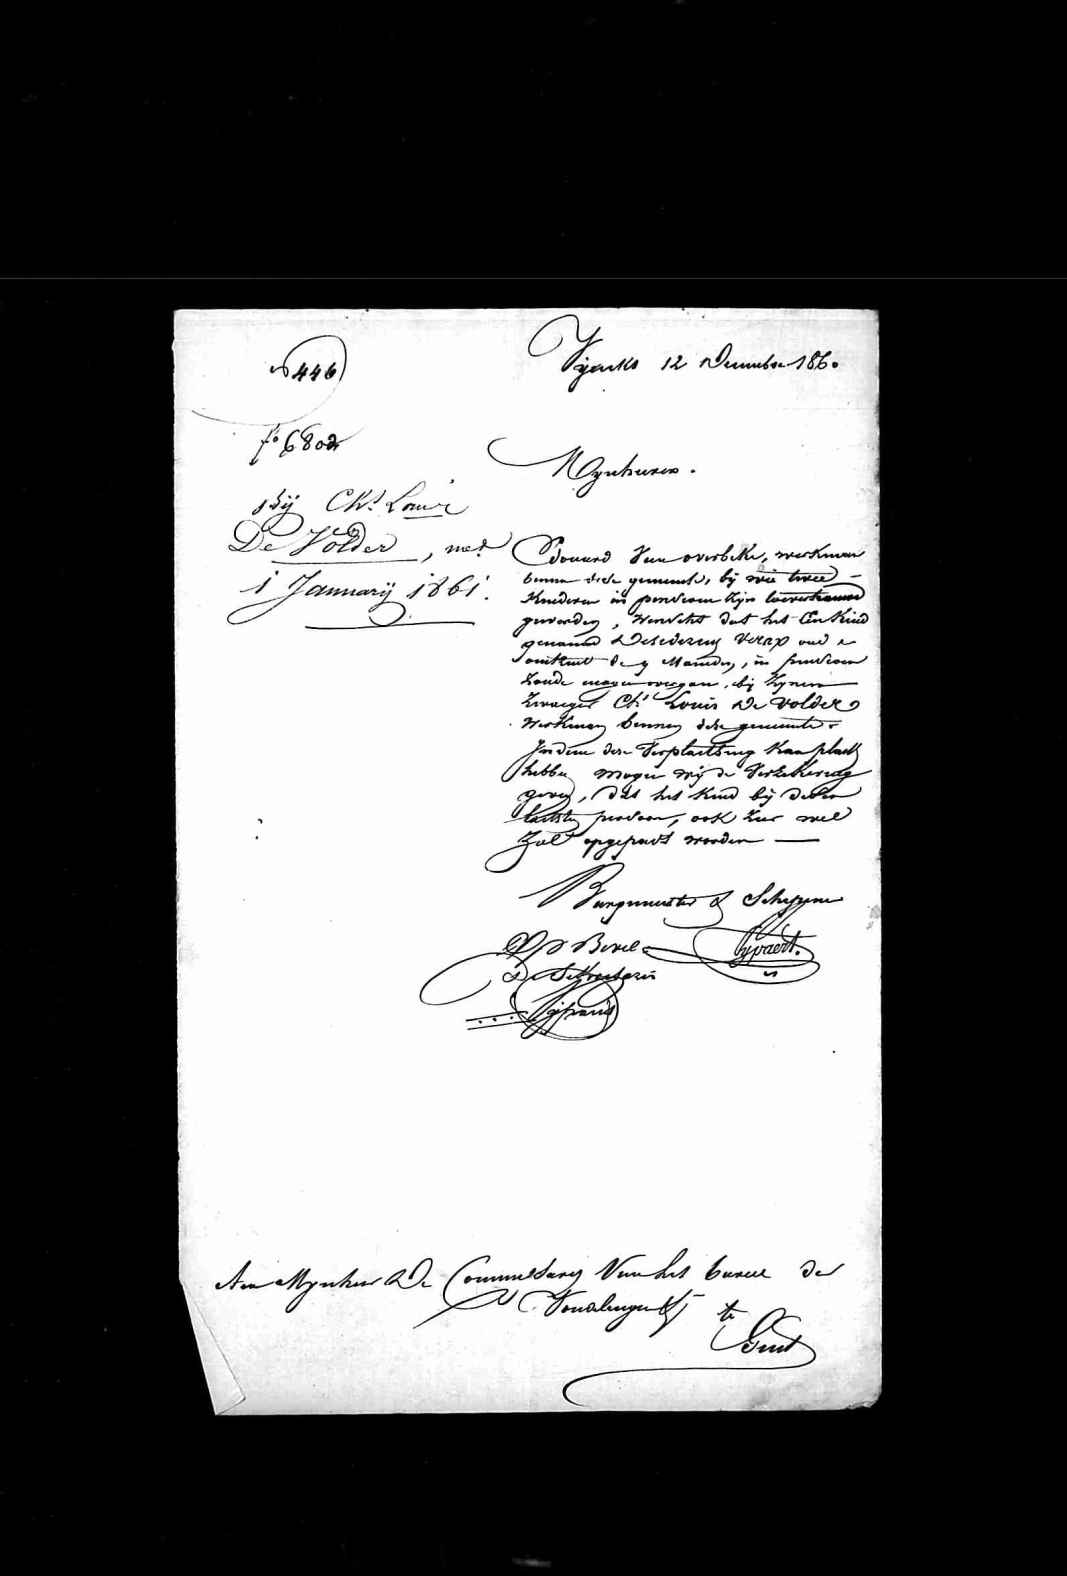 N° 446
Vynckt 12 December 1860
f° 680
Mynheeren.
bij Ch.s Louis
De Volder, met
1 January 1861.
Edouard Van overbeke, werkman
binnen deze gemeente, bij wie twee
kinderen in pensioen zijn toevertrouwd
geworden, wenscht dat het een kind
genaamd oud
Maenden, in pensioen
zoude mogen overgaan, bij zynen
zwager Ch.s Louis De Volder
werkman binnen deze gemeente.
Indien deze verplaetsing kan plaets
hebben mogen wij de verzekering
geven, dat het kind bij dezen
laetsten persoon, ook zeer wel
zal opgepast worden —
Burgemeester & Schepene
Op Bevel
De Sekretaris
Aen Mynheer De Commissaris Van het bureel der
Vondelingen te
Gent